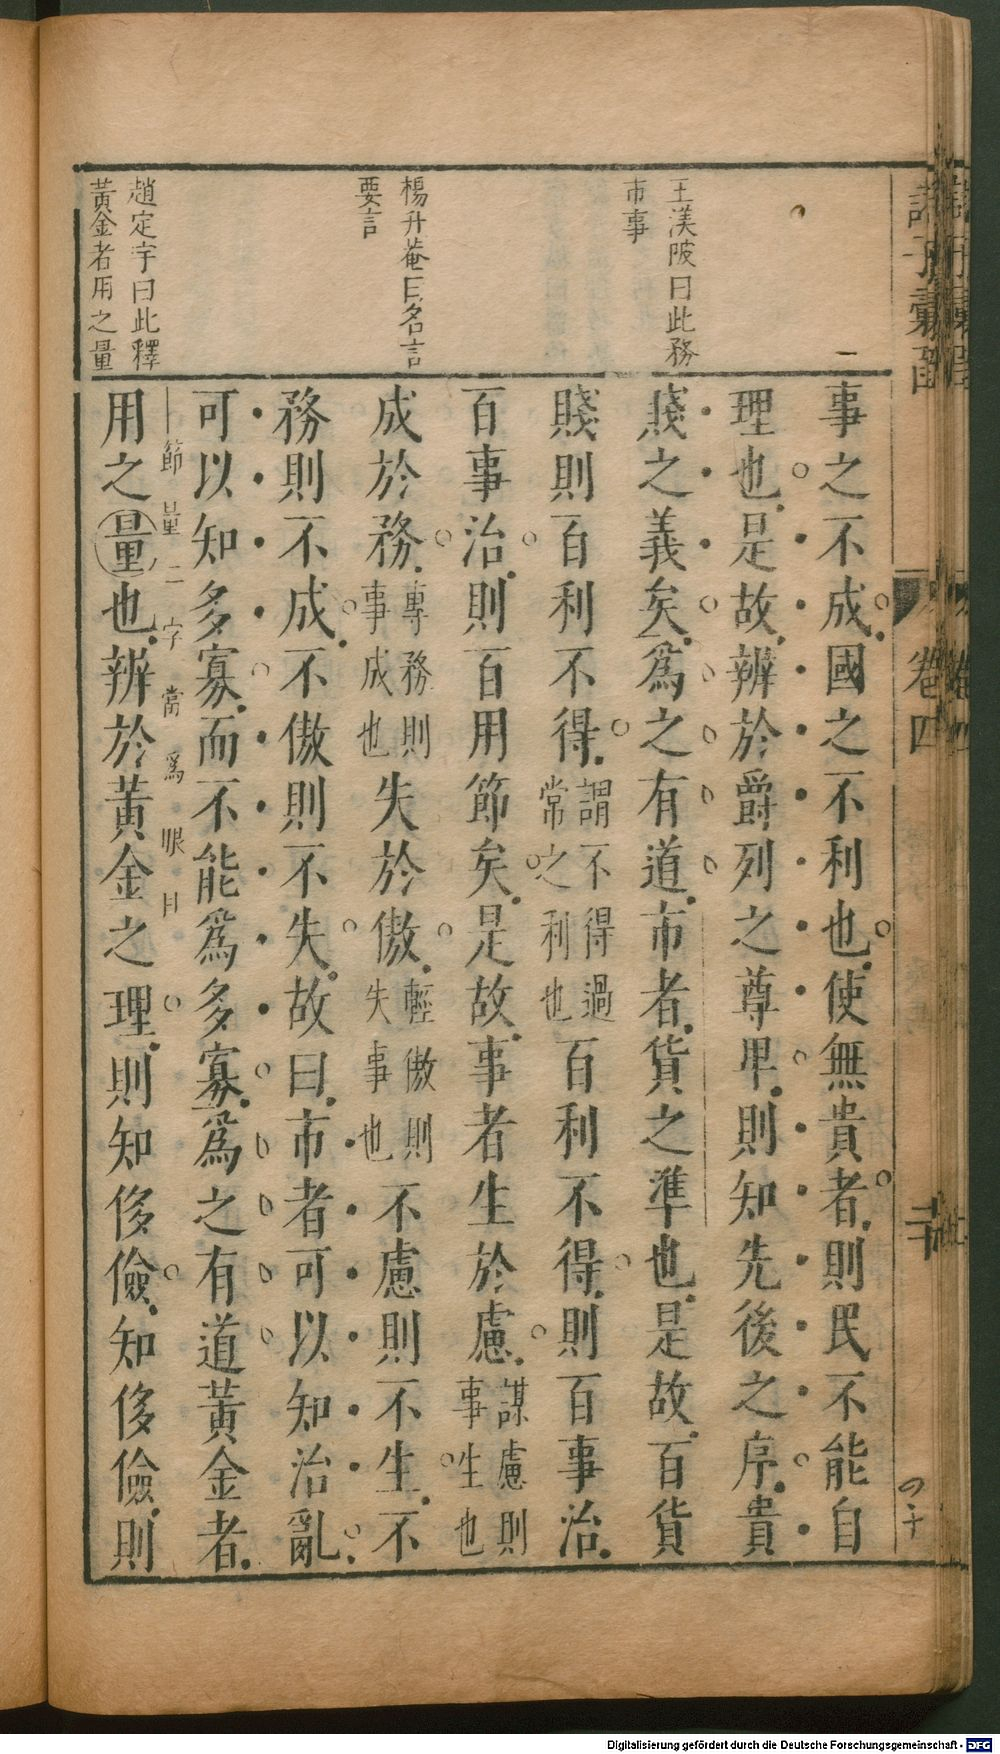 王渼陂曰此務
市事
楊升菴曰名言
要言
趙定宇曰此釋
黃金者用之量
事之不成國之不利也使無貴者則民不能自
理也是故辨於爵列之尊卑則知先後之序貴
賤之義矣為之有道市者貨之準也是故百貨
賤則百利不得謂不得過常之利也百利不得則百事治
百事治則百用節矣是故事者生於慮謀慮則事生也
成於務專務則事成也失於傲輕傲則失事也不慮則不生不
務則不成不傲則不失故曰市者可以知治亂
可以知多寡而不能為多寡為之有道黃金者
節量二字當為眼目
用之量也辨於黃金之理則知侈儉知侈儉則
卷四
Digitalisierung gefördert durch die Deutsche Forschungsgemeinschaft - DFG